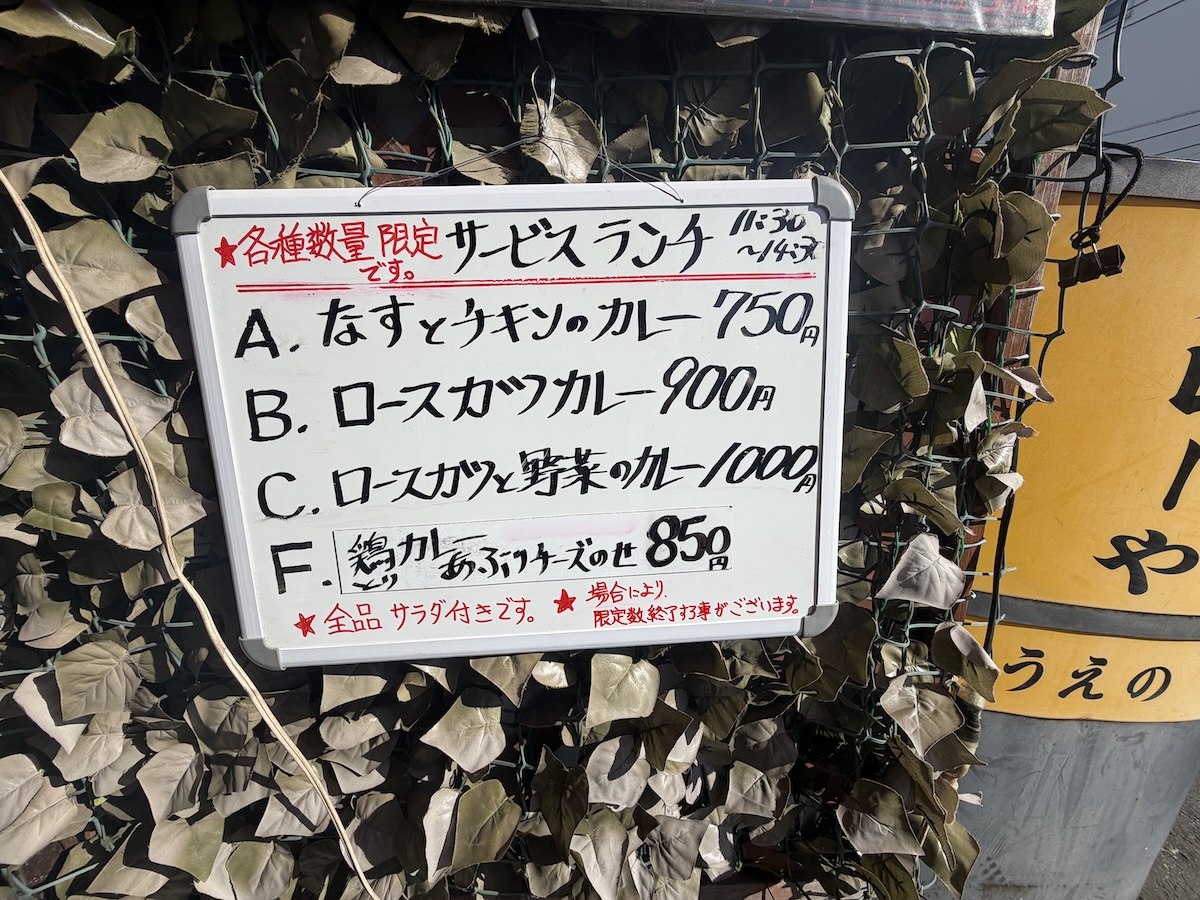 ★各種数量限定です。 サービスランチ 11:30
～14:
A. なすとチキンのカレー 750円
B. ロースカツカレー 900円
C. ロースカツと野菜のカレー 1000円
F. 鶏カレー あぶりチーズのせ 850円
とり
★全品 サラダ付きです。 ★場合により、
限定数終了する事がございます。
や
うえの